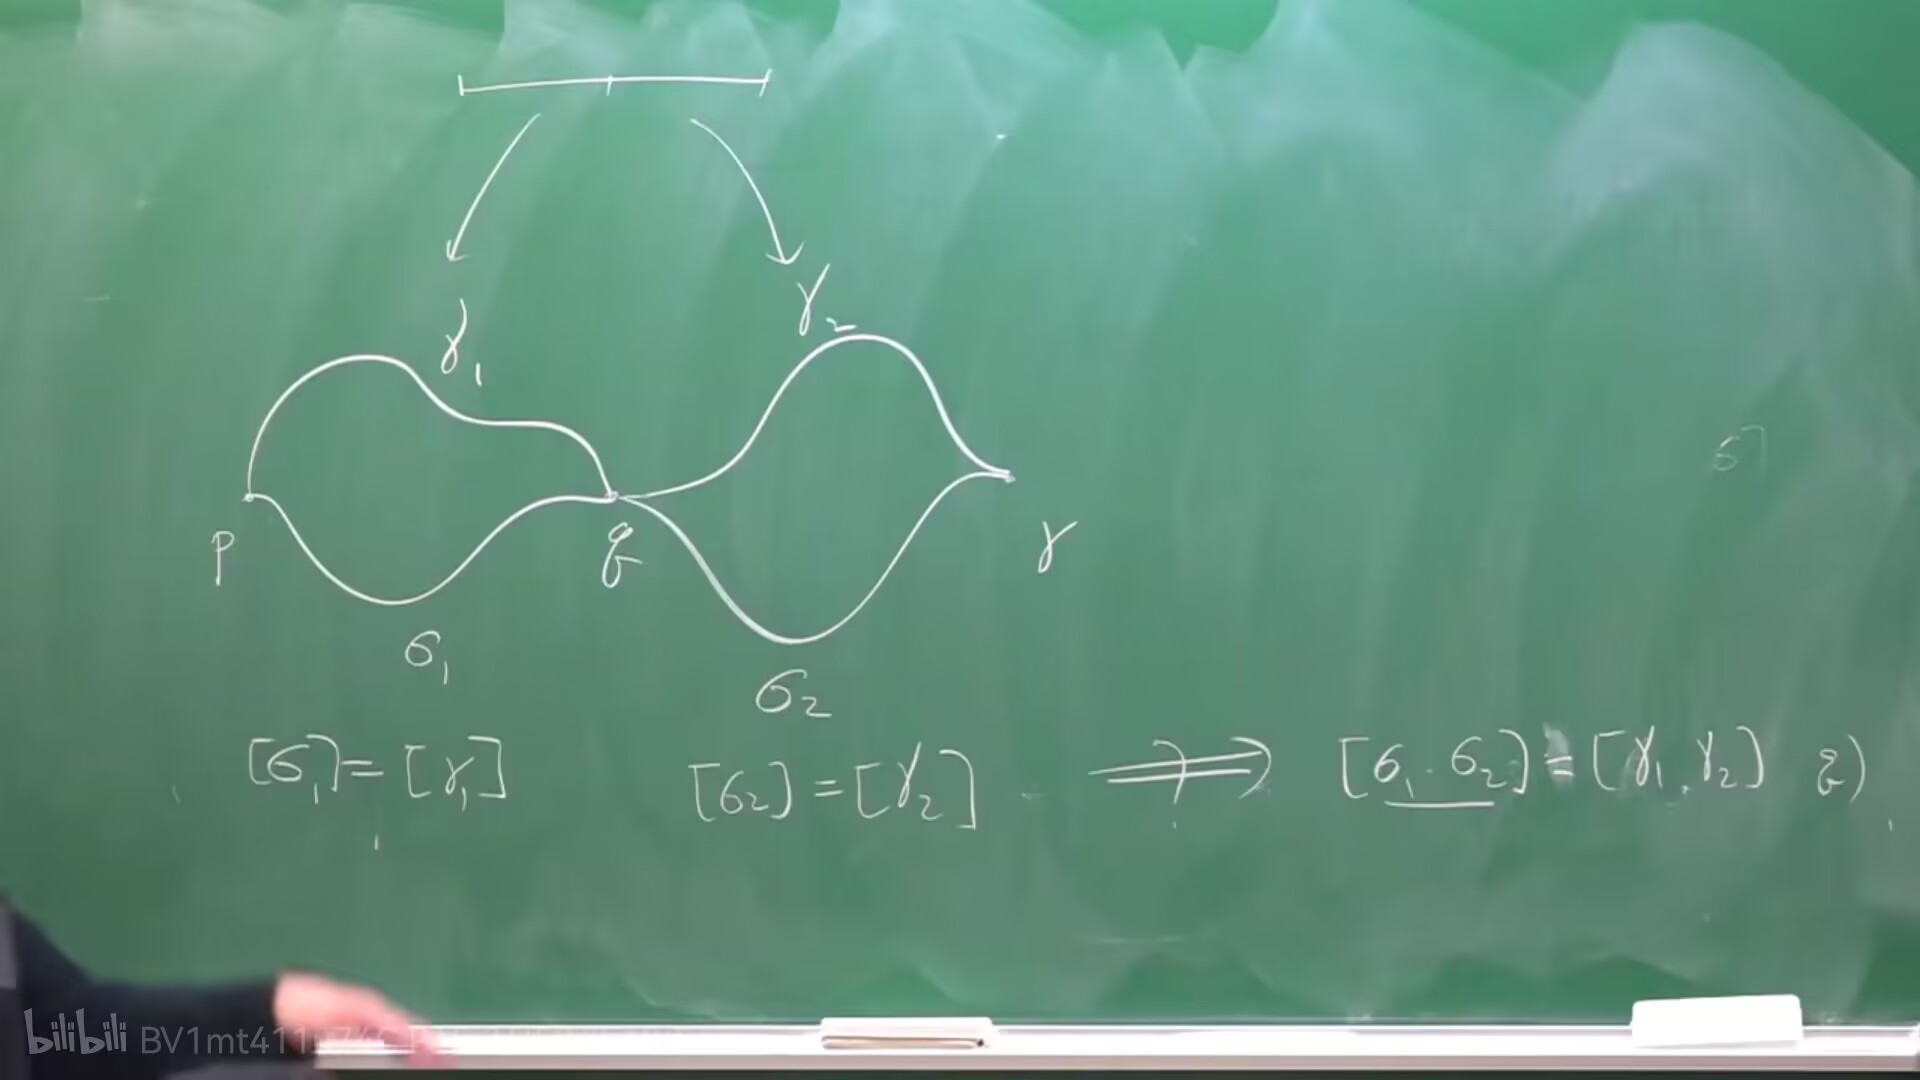 γ₁ γ₂
p q r
σ₁ σ₂
[σ₁]=[γ₁] [σ₂]=[γ₂] ⇒ [σ₁.σ₂]=[γ₁.γ₂] q)
bilibili